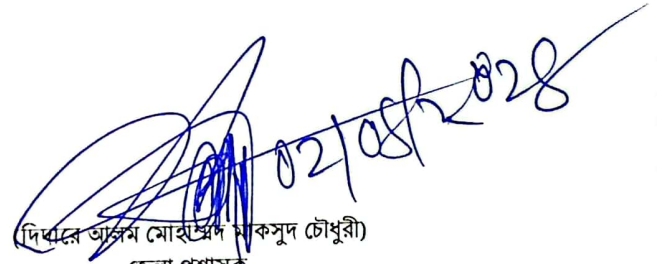 ০২/০৪/২০২৪
(দিদারে আলম মোহাম্মদ মাকসুদ চৌধুরী)
জেলা প্রশাসক